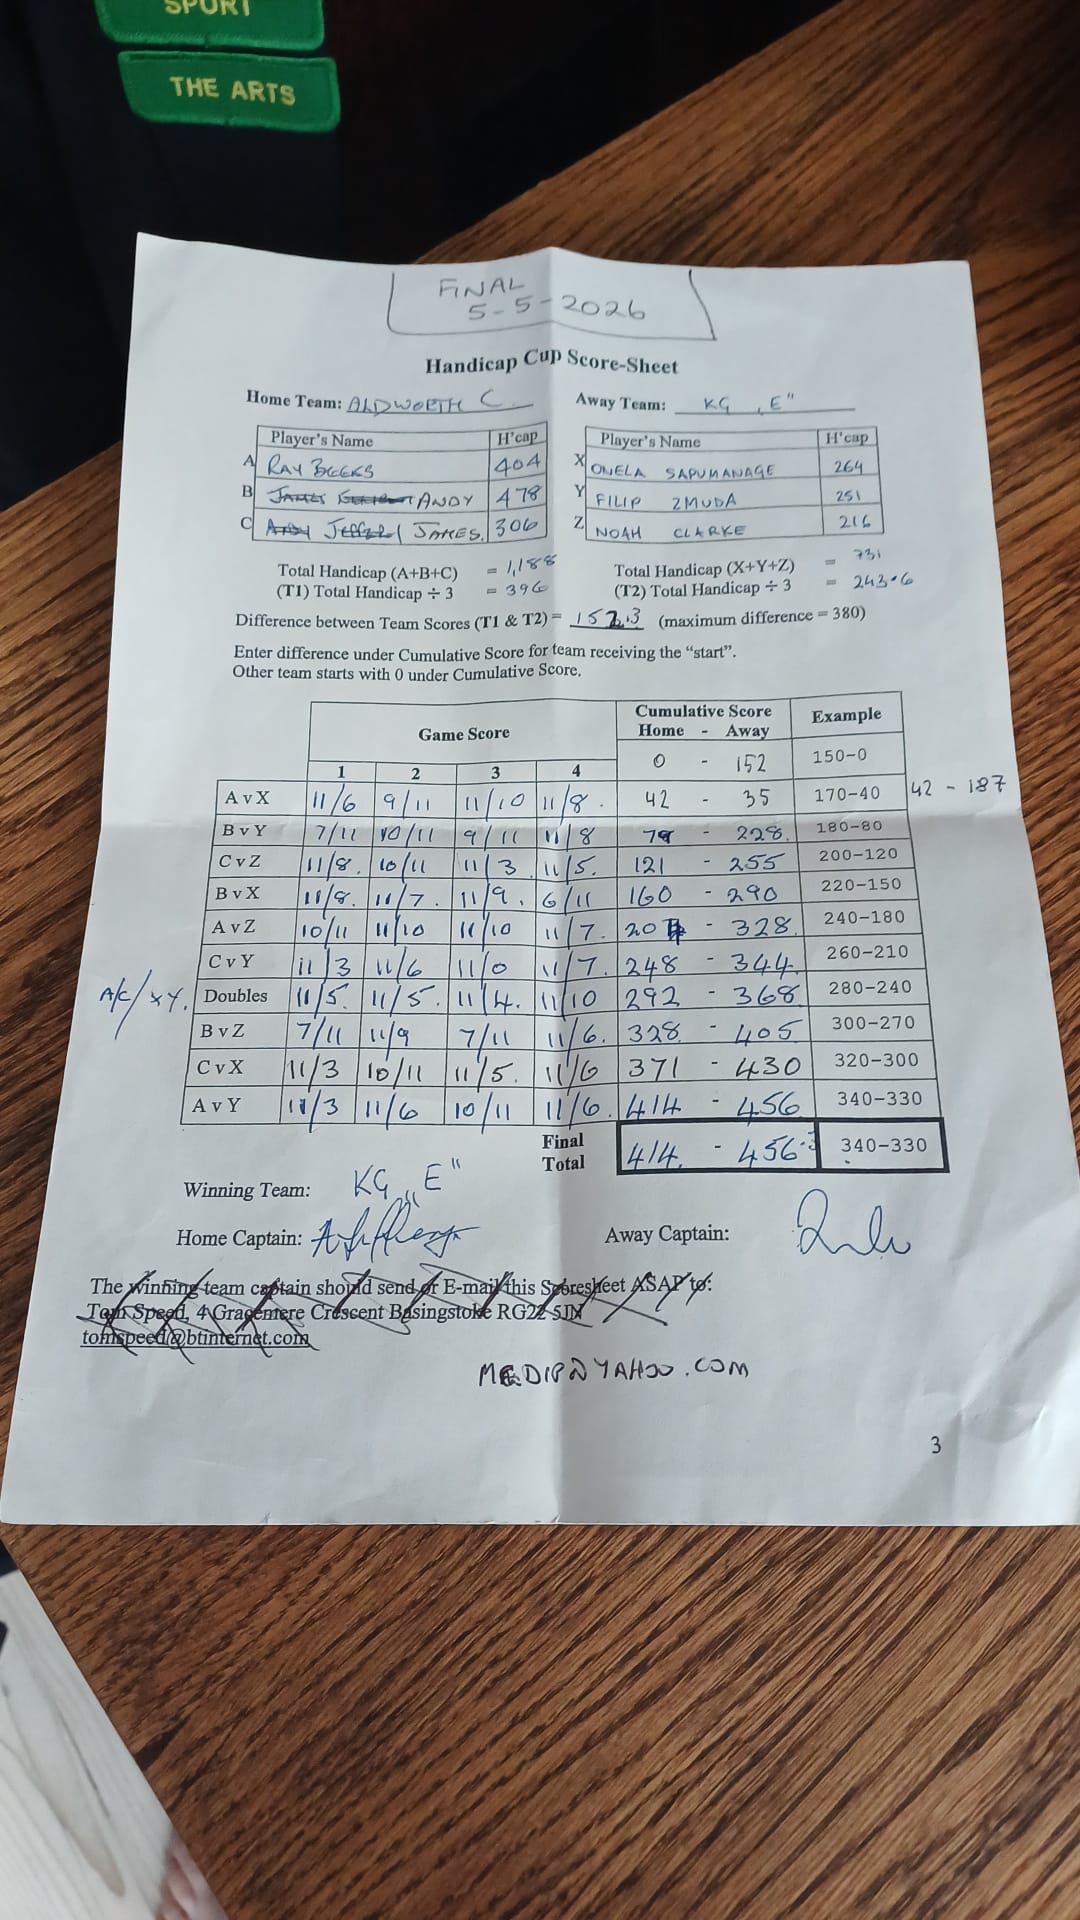 SPORT
THE ARTS
FINAL
5-5-2026
Handicap Cup Score-Sheet
Home Team: ALDWORTH C
Away Team: KG "E"
Player's Name H'cap
A RAY 404
B JAMES ANDY 478
C ANDY JAMES. 306
Player's Name H'cap
X ONELA SAPUMANAGE 264
Y FILIP ZMUDA 251
Z NOAH CLARKE 216
Total Handicap (A+B+C) = 1,188
(T1) Total Handicap ÷ 3 = 396
Total Handicap (X+Y+Z) = 731
(T2) Total Handicap ÷ 3 = 243.6
Difference between Team Scores (T1 & T2) = 152.3 (maximum difference = 380)
Enter difference under Cumulative Score for team receiving the "start".
Other team starts with 0 under Cumulative Score.
Game Score
Cumulative Score
Home - Away
Example
1 2 3 4
0 - 152 150-0
A v X 11/6 9/11 11/10 11/8. 42 - 35 170-40 42 - 187
B v Y 7/11 10/11 9/11 11/8 79 - 228. 180-80
C v Z 11/8. 10/11 11/3. 11/5. 121 - 255 200-120
B v X 11/8. 11/7. 11/9. 6/11 160 - 290 220-150
A v Z 10/11 11/10 11/10 11/7. 20 - 328. 240-180
C v Y 11/3 11/6 11/0 11/7. 248 - 344. 260-210
A/C/XY. Doubles 11/5. 11/5. 11/4. 11/10 292 - 368 280-240
B v Z 7/11 11/9 7/11 11/6. 328. - 405 300-270
C v X 11/3 10/11 11/5. 11/6 371 - 430 320-300
A v Y 11/3 11/6 10/11 11/6. 414 - 456 340-330
Final
Total
414. - 456.3 340-330
Winning Team: KG "E"
Home Captain:
Away Captain:
The winning team captain should send or E-mail this Scoresheet ASAP to:
Tom Speed, 4 Grasmere Crescent Basingstoke RG22 5JN
tomspeed@btinternet.com
YAHOO.COM
3